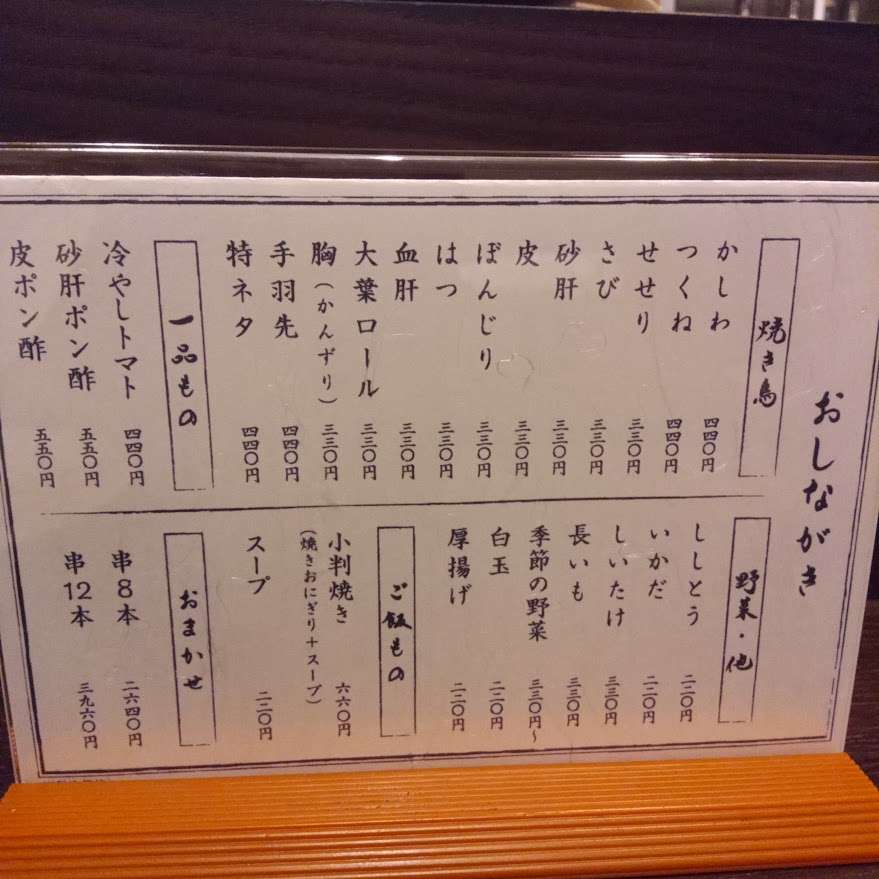 おしながき
焼き鳥
かしわ 四四〇円
つくね 四四〇円
せせり 三三〇円
さび 三三〇円
砂肝 三三〇円
皮 三三〇円
ぼんじり 三三〇円
はつ 三三〇円
血肝 三三〇円
大葉ロール 三三〇円
胸(かんずり) 三三〇円
手羽先 四四〇円
特ネタ 四四〇円
一品もの
冷やしトマト 四四〇円
砂肝ポン酢 五五〇円
皮ポン酢 五五〇円
野菜・他
ししとう 二二〇円
いかだ 二二〇円
しいたけ 三三〇円
長いも 三三〇円
季節の野菜 三三〇円〜
白玉 二二〇円
厚揚げ 二二〇円
ご飯もの
小判焼き 六六〇円
(焼きおにぎり+スープ)
スープ 二二〇円
おまかせ
串8本 二六四〇円
串12本 三九六〇円